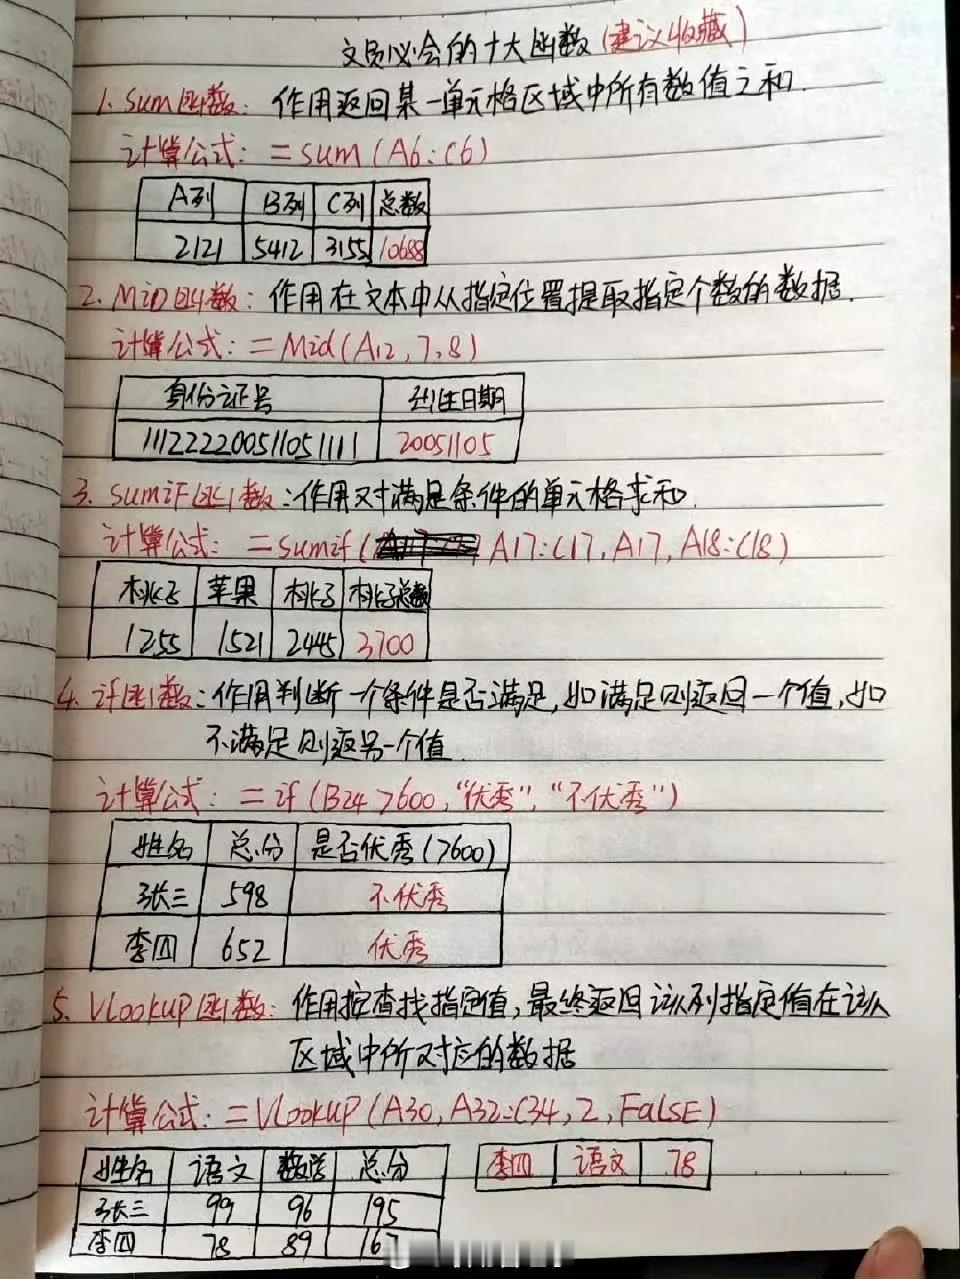 文员必会的十大函数(建议收藏)
1. Sum函数: 作用返回某一单元格区域中所有数值之和.
计算公式: =sum(A6:C6)
A列 B列 C列 总数
2121 5412 3155 10688
2. Mid函数: 作用在文本中从指定位置提取指定个数的数据.
计算公式: =Mid(A12,7,8)
身份证号 出生日期
111222200511051111 20051105
3. sumif函数: 作用对满足条件的单元格求和.
计算公式: =sumif( A17:C17,A17,A18:C18)
桃子 苹果 桃子 桃子总数
1255 1521 2445 3700
4. if函数: 作用判断一个条件是否满足,如满足则返回一个值,如
不满足则返另一个值.
计算公式: =if(B24>600,"优秀","不优秀")
姓名 总分 是否优秀(>600)
张三 598 不优秀
李四 652 优秀
5. Vlookup函数: 作用按查找指定值,最终返回该列指定值在该
区域中所对应的数据
计算公式: =Vlookup(A30,A32:C34,2,FalSE)
姓名 语文 数学 总分
李四 语文 78
张三 99 96 195
李四 78 89 167